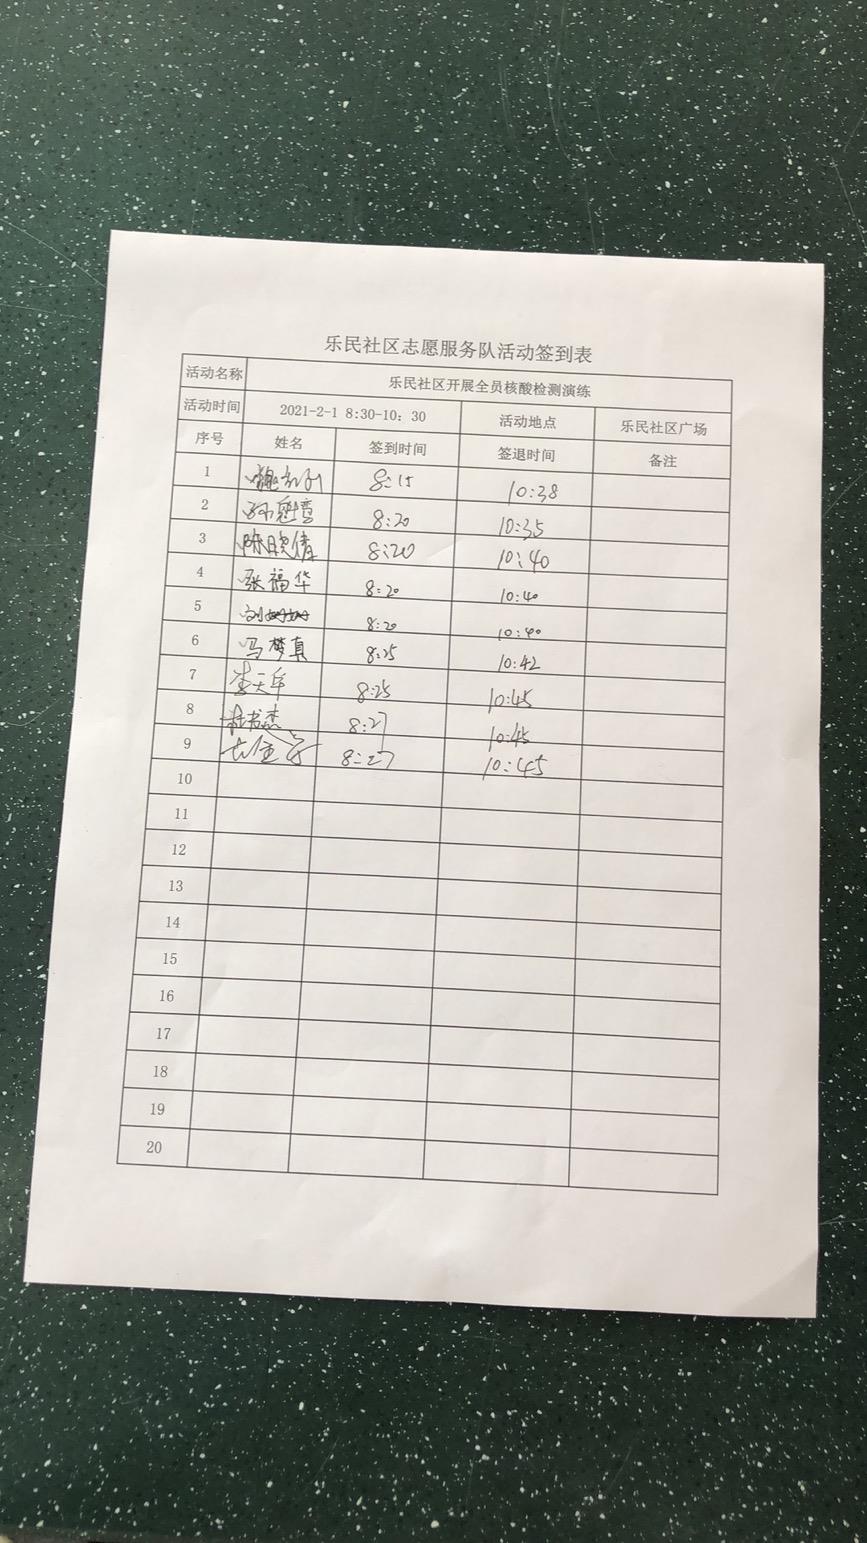 乐民社区志愿服务队活动签到表
活动名称 乐民社区开展全员核酸检测演练
活动时间 2021-2-1 8:30-10：30 活动地点 乐民社区广场
序号 姓名 签到时间 签退时间 备注
1 8:15 10:38
2 8:20 10:35
3 陈晓倩 8:20 10:40
4 张福华 8:20 10:40
5 8:20 10:40
6 马梦真 8:25 10:42
7 8:25 10:45
8 8:27 10:45
9 8:27 10:45
10
11
12
13
14
15
16
17
18
19
20